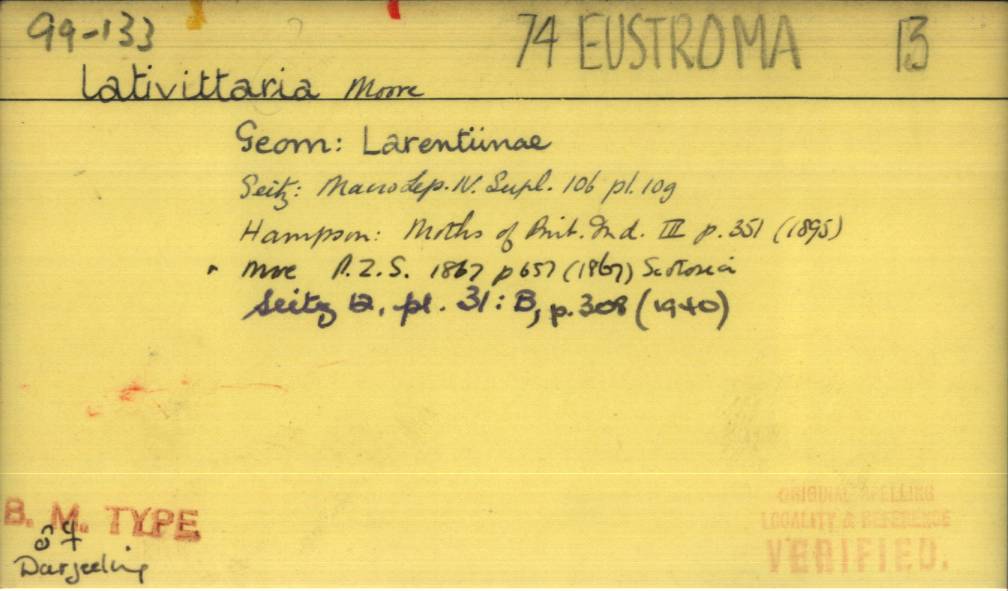 99-133 74 EUSTROMA 13
lativittaria Moore
Geom: Larentiinae
Seitz: Macrolep. IV. Supl. 106 pl. 10g
Hampson: Moths of Brit. Ind. III p. 351 (1895)
Mre P.Z.S. 1867 p 657 (1867) Scotosia
Seitz 12, pl. 31: B, p. 308 (1940)
B. M. TYPE
♂ ♀
Darjeeling
ORIGINAL SPELLING
LOCALITY & REFERENCE
VERIFIED.